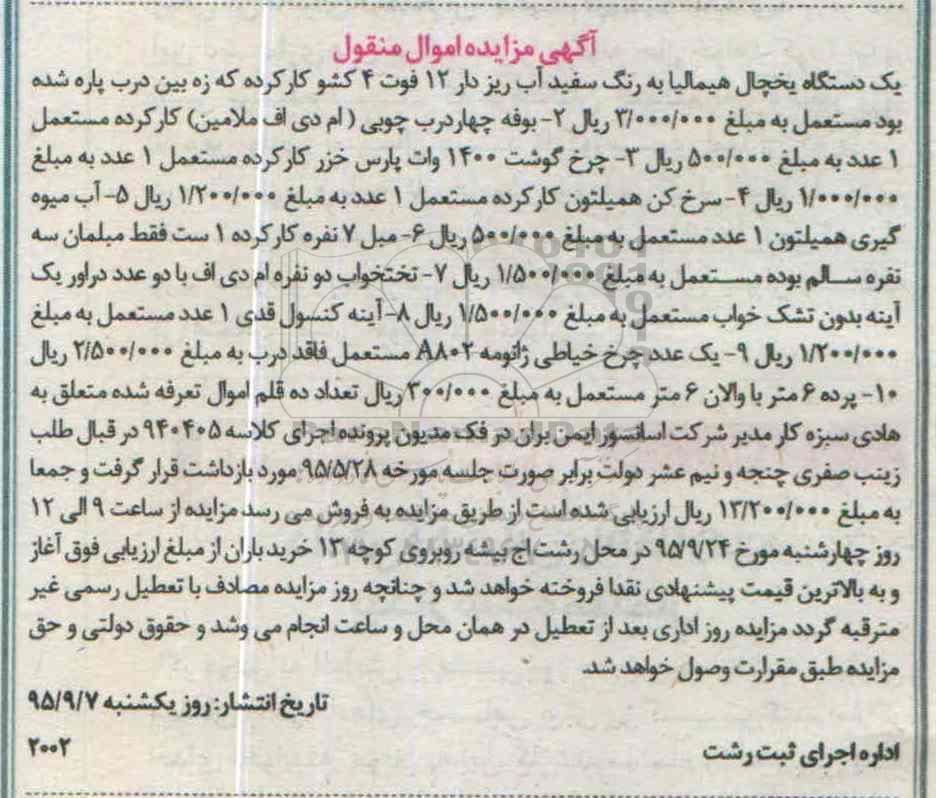 آگهی مزایده اموال منقول
یک دستگاه یخچال هیمالیا به رنگ سفید آب ریز دار ۱۲ فوت ۴ کشو کارکرده که زه بین درب پاره شده
بود مستعمل به مبلغ ۳/۰۰۰/۰۰۰ ریال ۲- بوفه چهاردرب چوبی ( ام دی اف ملامین) کارکرده مستعمل
۱ عدد به مبلغ ۵۰۰/۰۰۰ ریال ۳- چرخ گوشت ۱۴۰۰ وات پارس خزر کارکرده مستعمل ۱ عدد به مبلغ
۱/۰۰۰/۰۰۰ ریال ۴- سرخ کن همیلتون کارکرده مستعمل ۱ عدد به مبلغ ۱/۲۰۰/۰۰۰ ریال ۵- آب میوه
گیری همیلتون ۱ عدد مستعمل به مبلغ ۵۰۰/۰۰۰ ریال ۶- مبل ۷ نفره کارکرده ۱ ست فقط مبلمان سه
نفره سالم بوده مستعمل به مبلغ ۱/۵۰۰/۰۰۰ ریال ۷- تختخواب دو نفره ام دی اف با دو عدد دراور یک
آینه بدون تشک خواب مستعمل به مبلغ ۱/۵۰۰/۰۰۰ ریال ۸- آینه کنسول قدی ۱ عدد مستعمل به مبلغ
۱/۲۰۰/۰۰۰ ریال ۹- یک عدد چرخ خیاطی ژانومه A۸۰۲ مستعمل فاقد درب به مبلغ ۲/۵۰۰/۰۰۰ ریال
۱۰- پرده ۶ متر با والان ۶ متر مستعمل به مبلغ ۳۰۰/۰۰۰ ریال تعداد ده قلم اموال تعرفه شده متعلق به
هادی سبزه کار مدیر شرکت اسانسور ایمن بران در فک مدیون پرونده اجرای کلاسه ۹۴۰۴۰۵ در قبال طلب
زینب صفری چنجه و نیم عشر دولت برابر صورت جلسه مورخه ۹۵/۵/۲۸ مورد بازداشت قرار گرفت و جمعا
به مبلغ ۱۳/۲۰۰/۰۰۰ ریال ارزیابی شده است از طریق مزایده به فروش می رسد مزایده از ساعت ۹ الی ۱۲
روز چهارشنبه مورخ ۹۵/۹/۲۴ در محل رشت اج بیشه روبروی کوچه ۱۳ خریداران از مبلغ ارزیابی فوق آغاز
و به بالاترین قیمت پیشنهادی نقدا فروخته خواهد شد و چنانچه روز مزایده مصادف با تعطیل رسمی غیر
مترقبه گردد مزایده روز اداری بعد از تعطیل در همان محل و ساعت انجام می وشد و حقوق دولتی و حق
مزایده طبق مقرارت وصول خواهد شد.
تاریخ انتشار: روز یکشنبه ۹۵/۹/۷
اداره اجرای ثبت رشت
۲۰۰۲